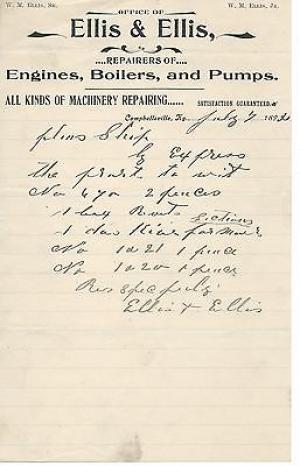 W. M. Ellis, Sr. OFFICE OF W. M. Ellis, Jr.
Ellis & Ellis,
....REPAIRERS OF....
Engines, Boilers, and Pumps.
ALL KINDS OF MACHINERY REPAIRING...... SATISFACTION GUARANTEED.
Campbellsville, Ky., July 7 189
Ship
By Express
the to wit
No 2 peaces
1 box Sections
1 doz
No 1021 1 peace
No 1020 1 peace
Respecfuly
Ellis & Ellis